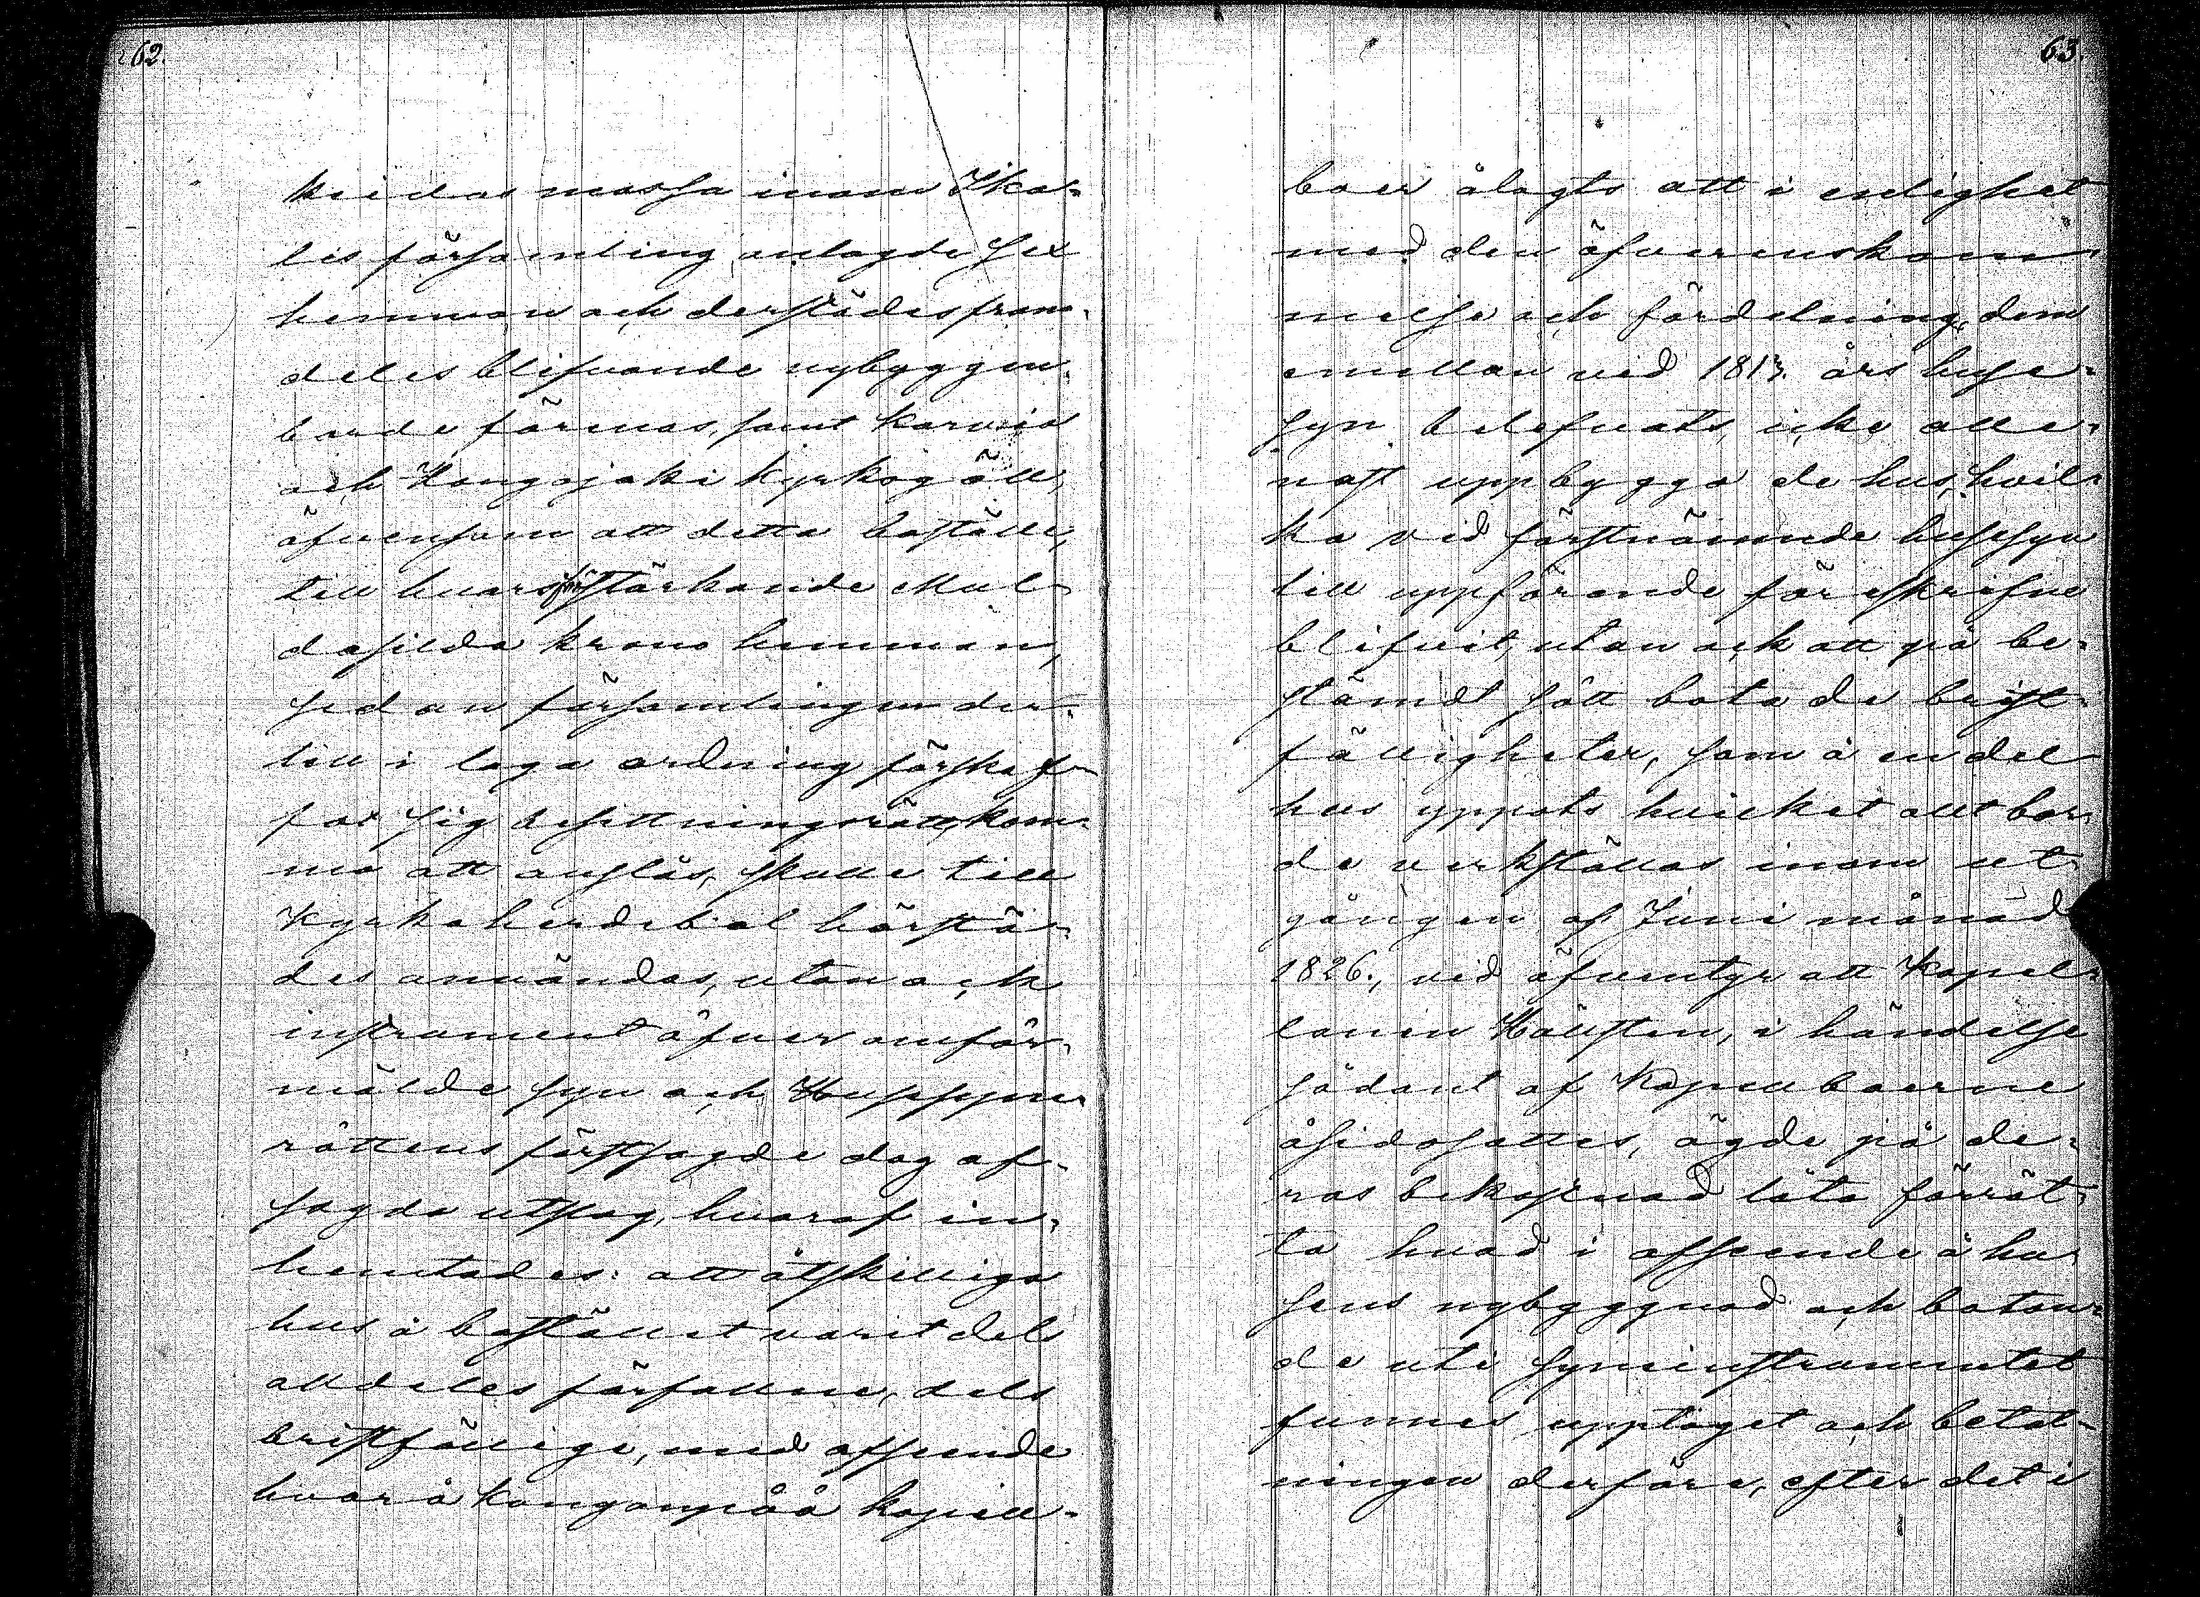 62.
keidas mossa inom Ika-
lis församling anlagde sex
hemman och derstädes fram-
deles blifvande nybyggen
borde förenas, samt Karvia
och Kongojoki kyrkogäll,
äfvensom att detta boställe,
till hvars förstärkande Mul-
dasilda krono hemman,
sedan församlingen der-
till i laga ordning förskaf-
fat sig besittningsrätt, kom-
me att anslås, skulle till
Kyrkoherdebol härstä-
des användas, utan ock
instrument öfver omför-
mälde syn och Hussyns-
rättens förstsagde dag af-
sagda utslag, hvaraf in-
hemtades: att åtskilliga
hus å bostället varit dels
alldeles förfallne, dels
bristfällige, med afseende
hvarå Kongonpää kapell-
63.
boer ålagts att i enlighet
med den öfverenskom-
melse och fördelning, dem
emellan vid 1813 års huse-
syn belefvats, icke alle-
nast uppbygga de hus, hvil-
ka vid förstnämnde hussyn
till uppförande föreskrifne
blifvit, utan ock att på be-
stämdt sätt bota de brist-
fälligheter, som å en del
hus yppats hvilket allt bor-
de verkställas inom ut-
gången af Juni månad
1826., vid äfventyr att Kapel-
lanen Hällsten, i händelse
sådant af Kapellboerne
åsidosattes, ägde på de-
ras bekostnad låta förrät-
ta hvad i afseende å hu-
sens nybyggnad och botan-
de uti syneinstrumentet
funnes upptaget och betal-
ningen derföre, efter det i